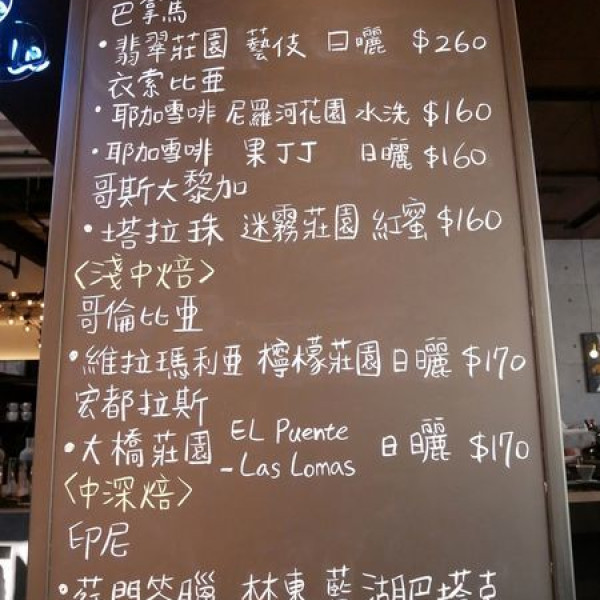 巴拿馬
·翡翠莊園 藝伎 日曬 $260
衣索比亞
·耶加雪啡 尼羅河花園 水洗 $160
·耶加雪啡 果丁丁 日曬 $160
哥斯大黎加
·塔拉珠 迷霧莊園 紅蜜 $160
〈淺中焙〉
哥倫比亞
·維拉瑪利亞 檸檬莊園 日曬 $170
宏都拉斯
·大橋莊園 EL Puente
-Las Lomas 日曬 $170
〈中深焙〉
印尼
·蘇門答臘 林東 藍湖肥塔克